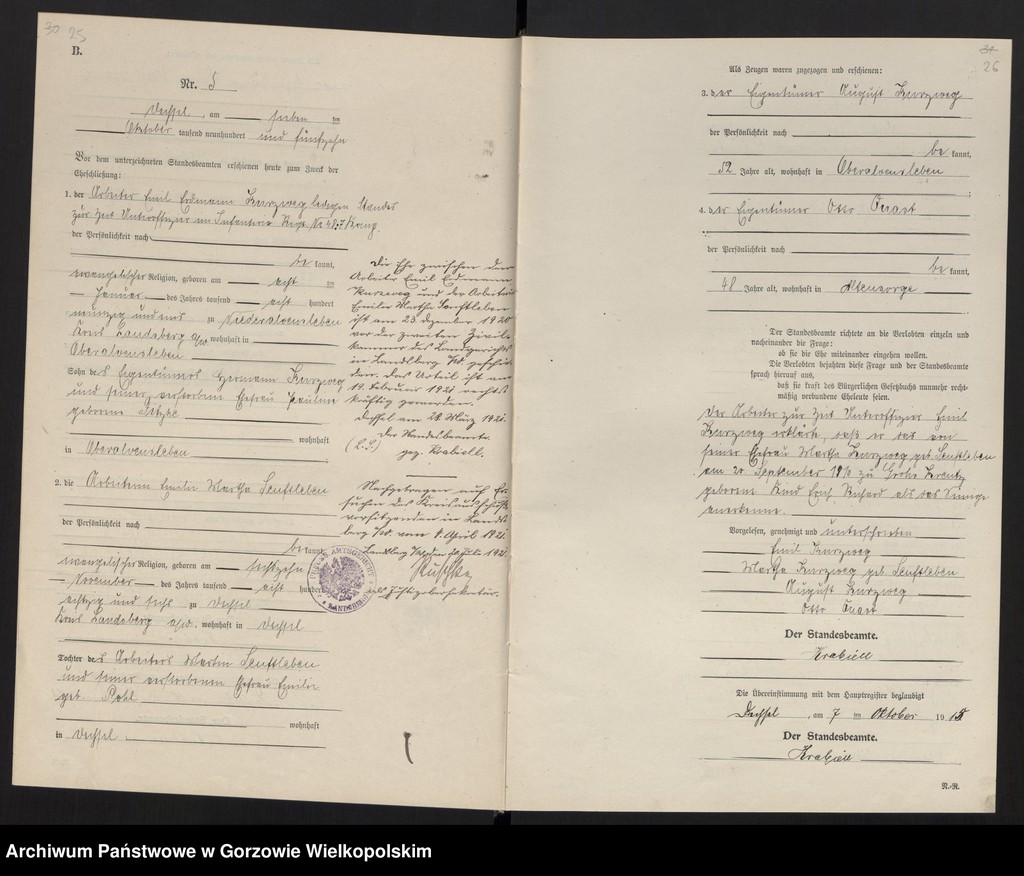 30 25
B.
Nr. 5
Dechsel, am sieben ten
Oktober tausend neunhundert und fünfzehn
Vor dem unterzeichneten Standesbeamten erschienen heute zum Zweck der
Eheschließung:
1. der Arbeiter Emil Erdmann Kurzweg ledigen Standes
zur Zeit Unteroffizier im Infanterie Regt Nr
der Persönlichkeit nach
be kannt,
evangelischer Religion, geboren am acht ten
Januar des Jahres tausend acht hundert
neunzig und eins zu Niederalvensleben
Kreis Landsberg a/W wohnhaft in
Oberalvensleben
Sohn des Eigentümers Hermann Kurzweg
und seiner verstorbenen Ehefrau Pauline
geborene
wohnhaft
in Oberalvensleben
2. die Arbeiterin Emilie Martha Senftleben
der Persönlichkeit nach
be kannt,
evangelischer Religion, geboren am sechzehn ten
November des Jahres tausend acht hundert
achtzig und sechs zu Dechsel
Kreis Landsberg a/W. wohnhaft in Dechsel
Tochter des Arbeiters Martin Senftleben
und seiner verstorbenen Ehefrau Emilie
geb. Pohl
wohnhaft
in Dechsel
Die Ehe zwischen dem
Arbeiter Emil Erdmann
Kurzweg und der Arbeiterin
Emilie Martha Senftleben
ist am 23. Dezember 1920
vor der zweiten Zivil-
kammer des Landgerichts
in Landsberg a/W. geschie-
den. Das Urteil ist am
19. Februar 1921 rechts-
kräftig geworden.
Dechsel am 28. März 1921.
Der Standesbeamte.
(L.S.) gez. Krabiell.
Nachgetragen auf Er-
suchen des Kreisausschuß-
vorsitzenden in Lands-
berg a/W. vom 8. April 1921.
Landsberg
als Justizobersekretär.
AMTSGERICHT
LANDSBERG
31
26
Als Zeugen waren zugezogen und erschienen:
3. der Eigentümer August Kurzweg
der Persönlichkeit nach
be kannt,
52 Jahre alt, wohnhaft in Oberalvensleben
4. der Eigentümer Otto Quast
der Persönlichkeit nach
be kannt,
48 Jahre alt, wohnhaft in Altensorge
Der Standesbeamte richtete an die Verlobten einzeln und
nacheinander die Frage:
ob sie die Ehe miteinander eingehen wollen.
Die Verlobten bejahten diese Frage und der Standesbeamte
sprach hierauf aus,
daß sie kraft des Bürgerlichen Gesetzbuchs nunmehr recht-
mäßig verbundene Eheleute seien.
Der Arbeiter zur Zeit Unteroffizier Emil
Kurzweg erklärte, daß er das von
seiner Ehefrau Martha Kurzweg geb. Senftleben
am 20 September zu Groß
geborene Kind Erich Richard als das Seinige
anerkenne.
Vorgelesen, genehmigt und unterschrieben
Emil Kurzweg
Martha Kurzweg geb. Senftleben
August Kurzweg
Otto Quast
Der Standesbeamte.
Krabiell
Die Übereinstimmung mit dem Hauptregister beglaubigt
Dechsel, am 7 ten Oktober 1915
Der Standesbeamte.
Krabiell
N.-R.
Archiwum Państwowe w Gorzowie Wielkopolskim